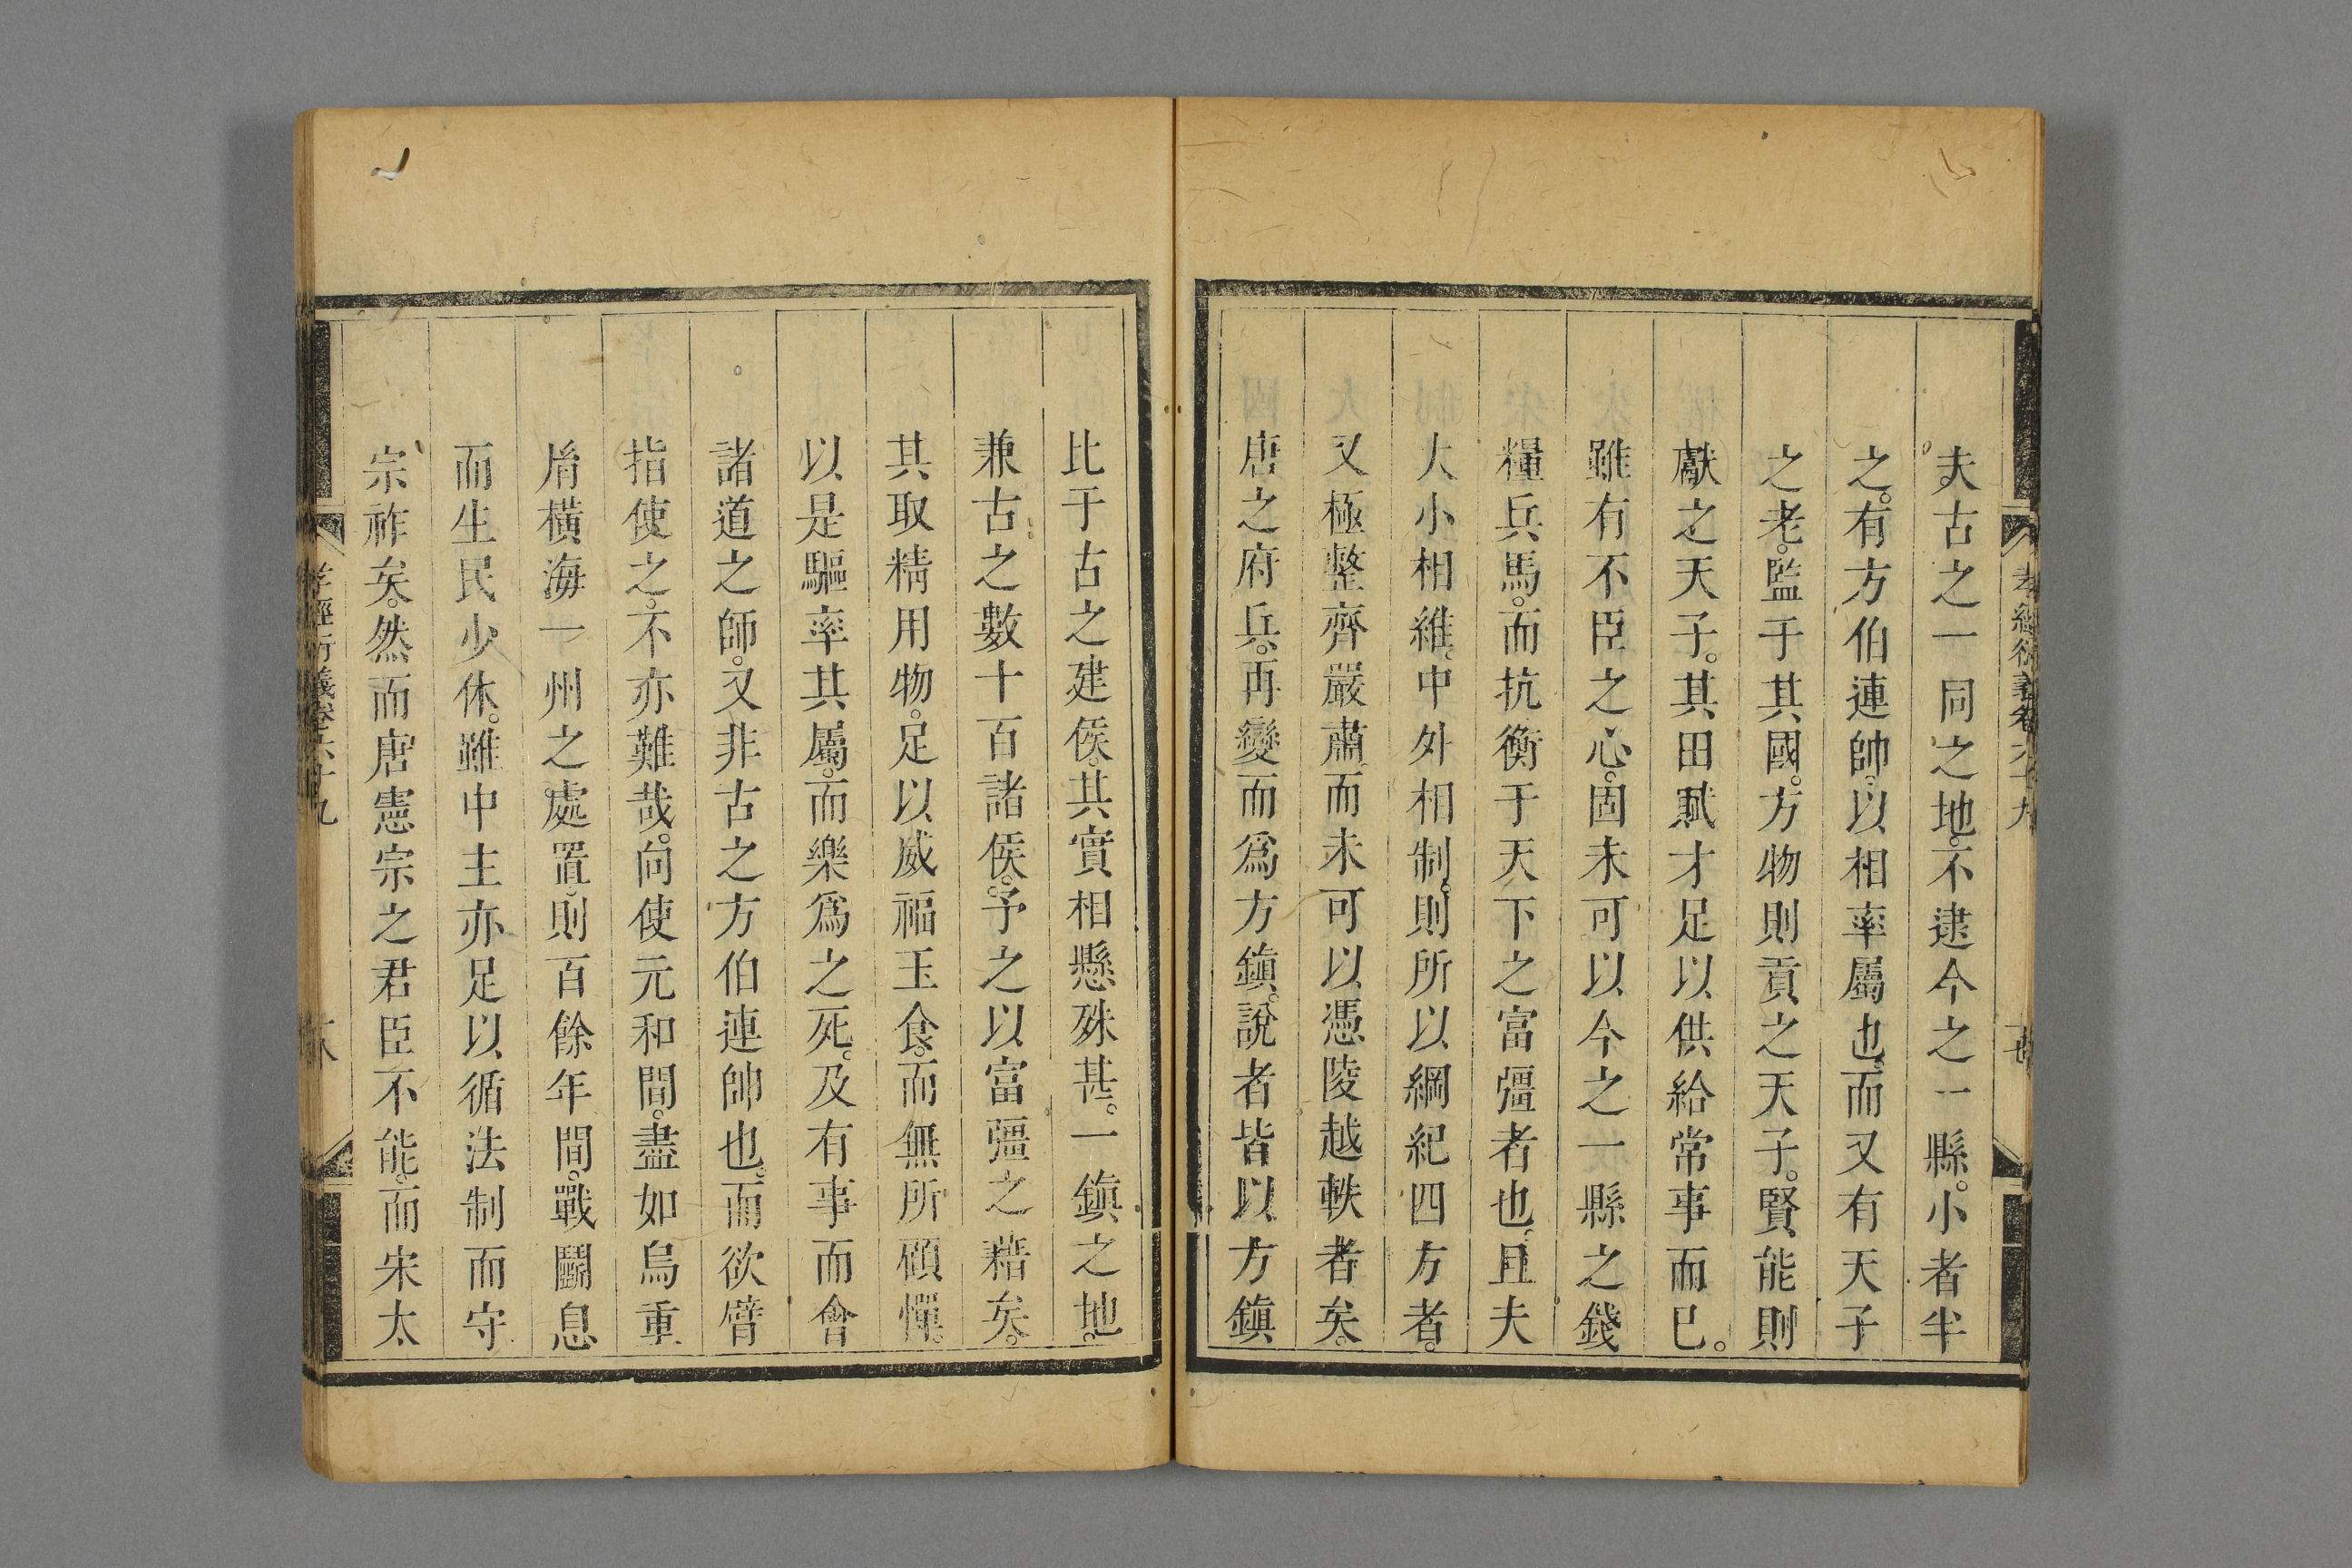 夫古之一同之地。不逮今之一縣。小者半
之。有方伯連帥。以相率屬也。而又有天子
之老。監于其國。方物則貢之天子。賢能則
獻之天子。其田賦才足以供給常事而已。
雖有不臣之心。固未可以今之一縣之錢
糧兵馬。而抗衡于天下之富彊者也。且夫
大小相維。中外相制。則所以綱紀四方者。
又極整齊嚴肅。而未可以憑陵越軼者矣。
唐之府兵。再變而爲方鎮。說者皆以方鎮
比于古之建侯。其實相懸殊甚。一鎮之地。
兼古之數十百諸侯。予之以富彊之藉矣。
其取精用物。足以威福玉食。而無所顧憚。
以是驅率其屬。而樂爲之死。及有事而會
諸道之師。又非古之方伯連帥也。而欲臂
指使之。不亦難哉。向使元和間。盡如烏重
胤橫海一州之處置。則百餘年間。戰鬭息
而生民少休。雖中主亦足以循法制而守
宗祚矣。然而唐憲宗之君臣不能。而宋太
孝經衍義卷六十九